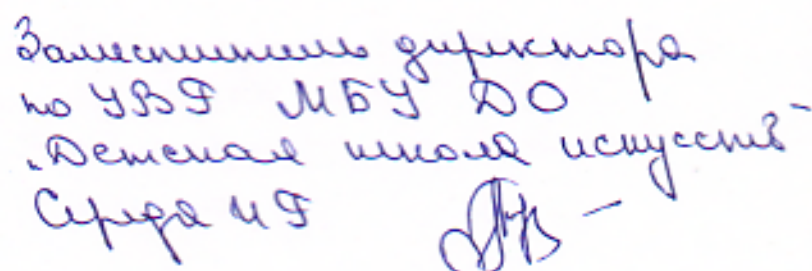 Заместитель директора
по УВР МБУ ДО
„Детская школа искусств"
Середа И Г